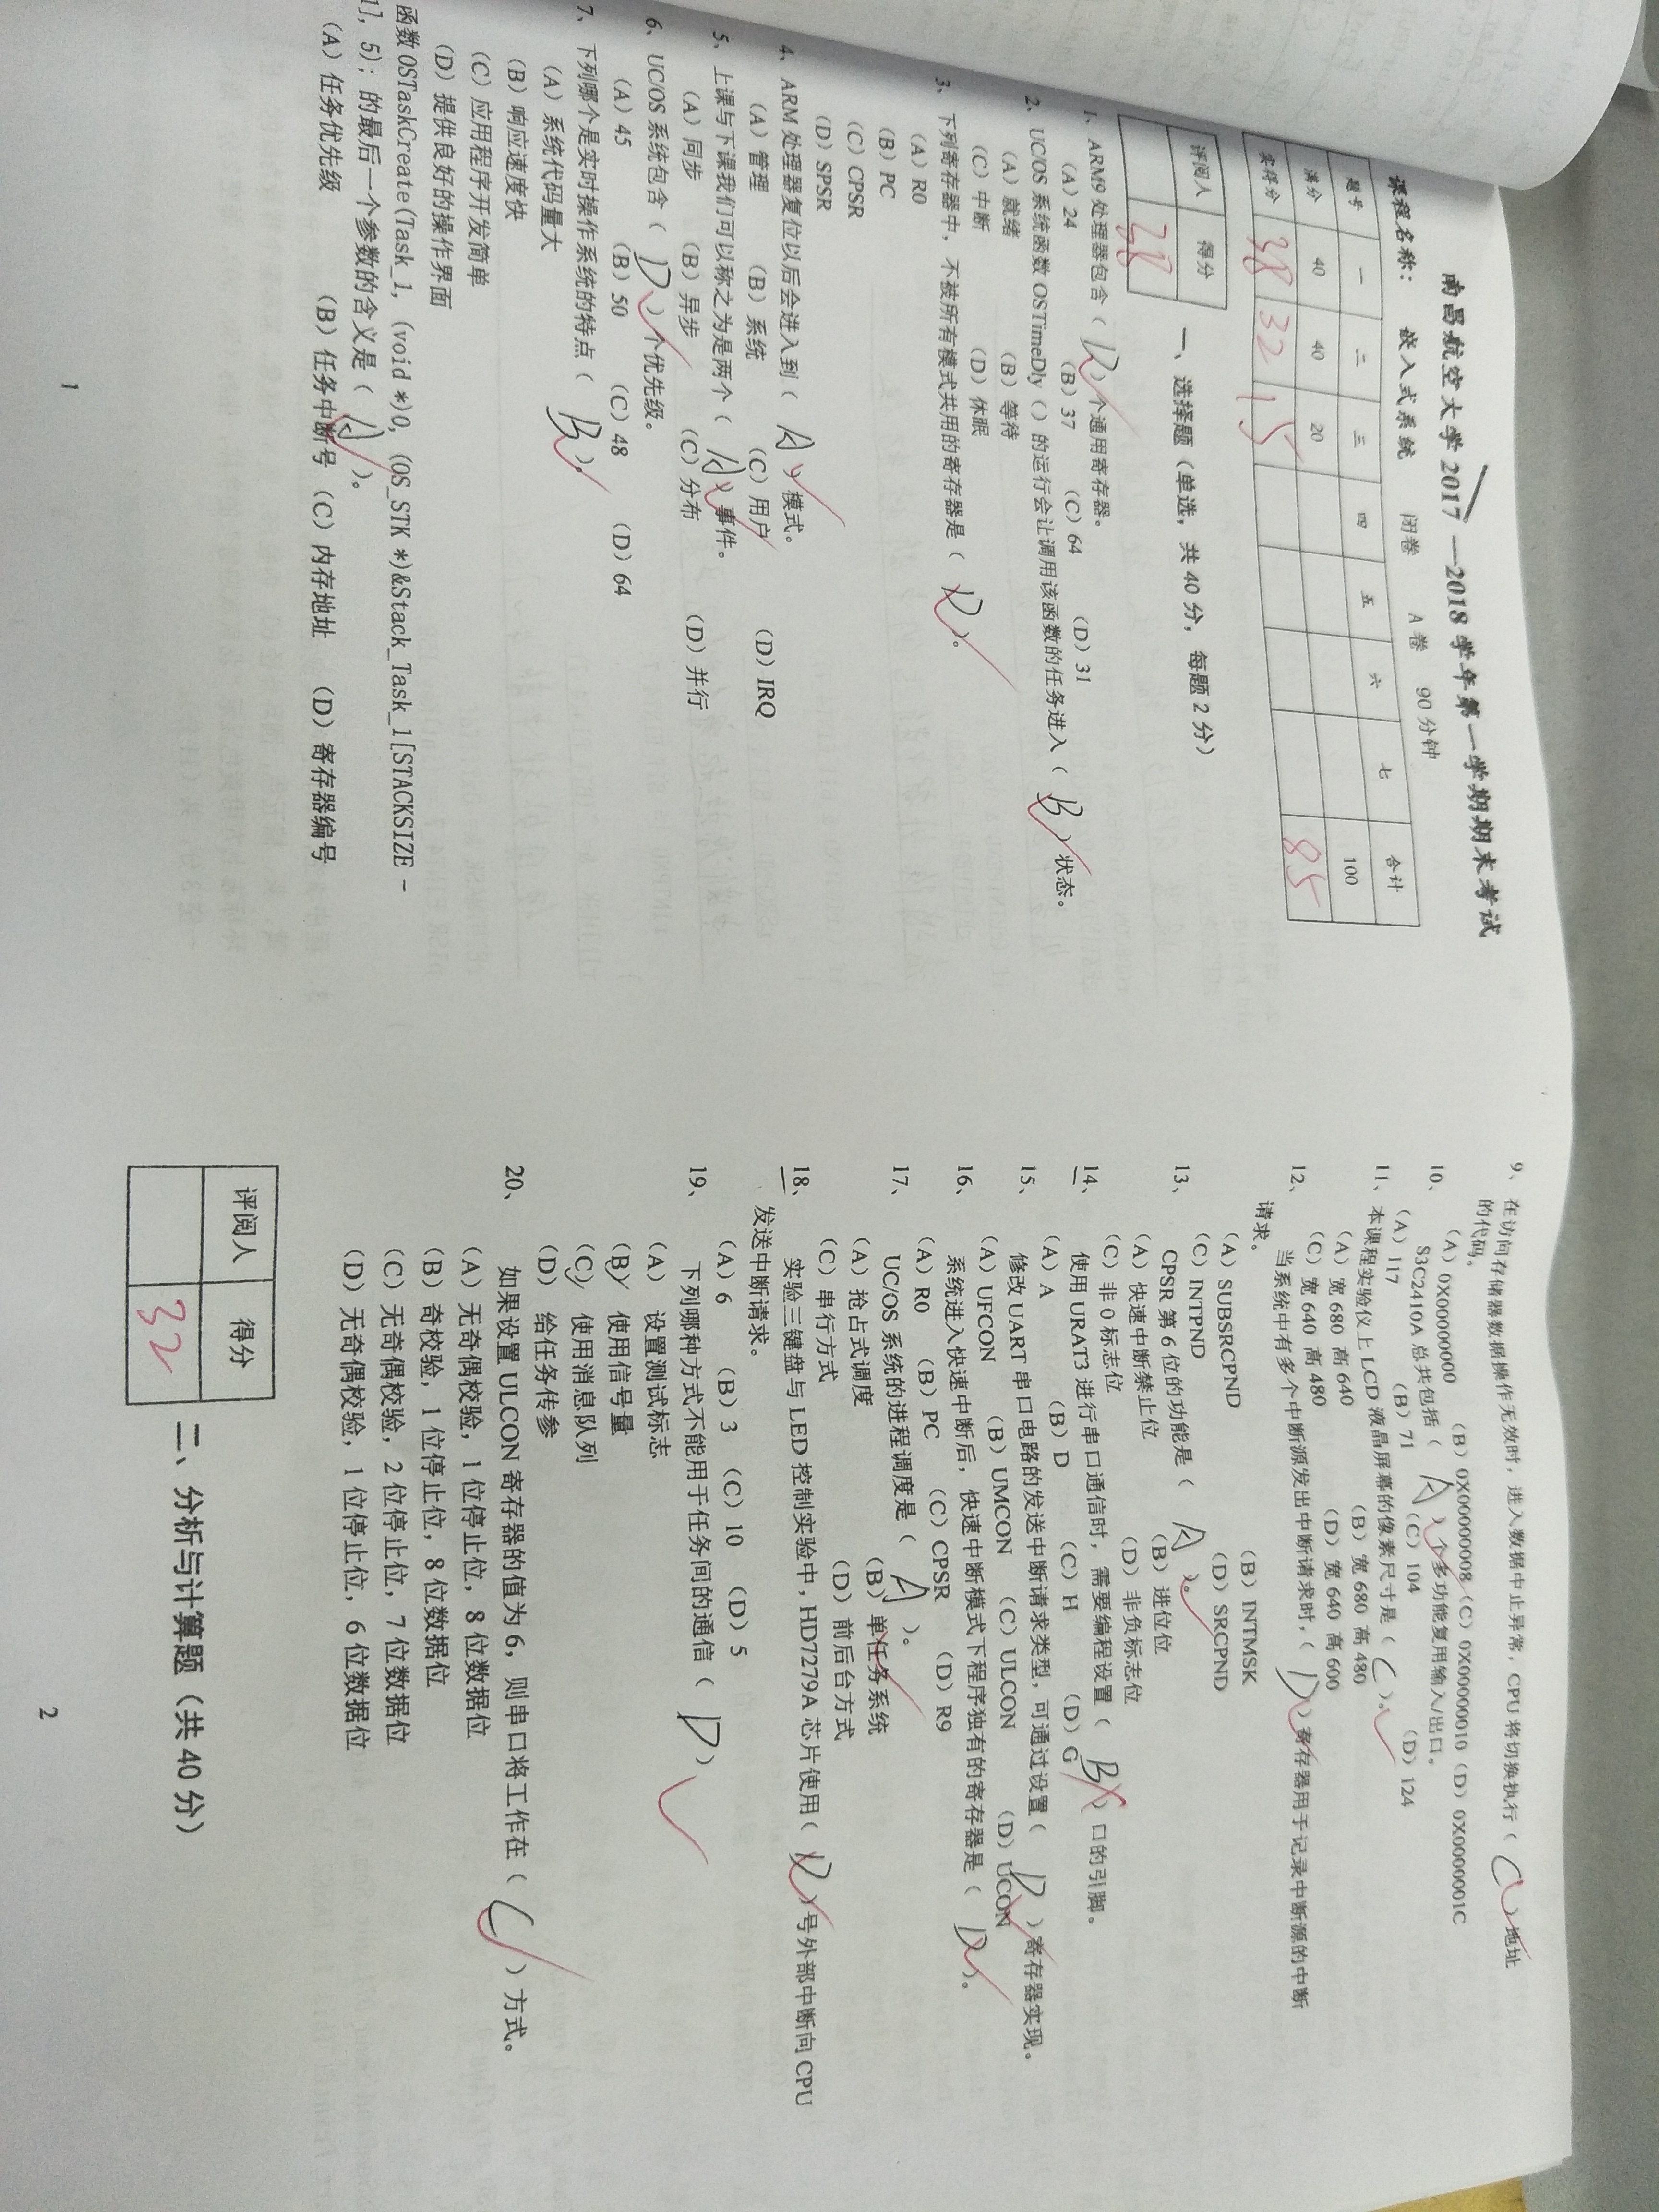 南昌航空大学 2017 —2018 学年第一学期期末考试
课程名称： 嵌入式系统 闭卷 A 卷 90 分钟
题号 一 二 三 四 五 六 七 合计
满分 40 40 20 100
实得分 38 32 15 85
评阅人 得分
38
一、选择题（单选，共 40 分，每题 2 分）
1、ARM9 处理器包含（ D ）个通用寄存器。
（A）24 （B）37 （C）64 （D）31
2、UC/OS 系统函数 OSTimeDly（）的运行会让调用该函数的任务进入（ B ）状态。
（A）就绪 （B）等待
（C）中断 （D）休眠
3、下列寄存器中，不被所有模式共用的寄存器是（ D ）。
（A）R0
（B）PC
（C）CPSR
（D）SPSR
4、ARM 处理器复位以后会进入到（ A ）模式。
（A）管理 （B）系统 （C）用户 （D）IRQ
5、上课与下课我们可以称之为是两个（ A ）事件。
（A）同步 （B）异步 （C）分布 （D）并行
6、UC/OS 系统包含（ D ）个优先级。
（A）45 （B）50 （C）48 （D）64
7、下列哪个是实时操作系统的特点（ B ）。
（A）系统代码量大
（B）响应速度快
（C）应用程序开发简单
（D）提供良好的操作界面
函数 OSTaskCreate(Task_1, (void *)0, (OS_STK *)&Stack_Task_1[STACKSIZE －
1], 5); 的最后一个参数的含义是（ A ）。
（A）任务优先级 （B）任务中断号 （C）内存地址 （D）寄存器编号
1
9、在访问存储器数据操作无效时，进入数据中止异常，CPU 将切换执行（ C ）地址
的代码。
（A）0X00000000 （B）0X00000008（C）0X00000010（D）0X0000001C
10、 S3C2410A 总共包括（ A ）个多功能复用输入/出口。
（A）117 （B）71 （C）104 （D）124
11、本课程实验仪上 LCD 液晶屏幕的像素尺寸是（ C ）。
（A）宽 680 高 640 （B）宽 680 高 480
（C）宽 640 高 480 （D）宽 640 高 600
12、 当系统中有多个中断源发出中断请求时，（ D ）寄存器用于记录中断源的中断
请求。
（A）SUBSRCPND （B）INTMSK
（C）INTPND （D）SRCPND
13、 CPSR 第 6 位的功能是（ A ）。
（A）快速中断禁止位 （B）进位位
（C）非 0 标志位 （D）非负标志位
14、 使用 URAT3 进行串口通信时，需要编程设置（ B ）口的引脚。
（A）A （B）D （C）H （D）G
15、 修改 UART 串口电路的发送中断请求类型，可通过设置（ D ）寄存器实现。
（A）UFCON （B）UMCON （C）ULCON （D）UCON
16、 系统进入快速中断后，快速中断模式下程序独有的寄存器是（ D ）。
（A）R0 （B）PC （C）CPSR （D）R9
17、 UC/OS 系统的进程调度是（ A ）。
（A）抢占式调度 （B）单任务系统
（C）串行方式 （D）前后台方式
18、 实验三键盘与 LED 控制实验中，HD7279A 芯片使用（ D ）号外部中断向 CPU
发送中断请求。
（A）6 （B）3 （C）10 （D）5
19、 下列哪种方式不能用于任务间的通信（ D ）
（A） 设置测试标志
（B） 使用信号量
（C） 使用消息队列
（D） 给任务传参
20、 如果设置 ULCON 寄存器的值为 6，则串口将工作在（ C ）方式。
（A）无奇偶校验，1 位停止位，8 位数据位
（B）奇校验，1 位停止位，8 位数据位
（C）无奇偶校验，2 位停止位，7 位数据位
（D）无奇偶校验，1 位停止位，6 位数据位
评阅人 得分
32
二、分析与计算题（共 40 分）
2